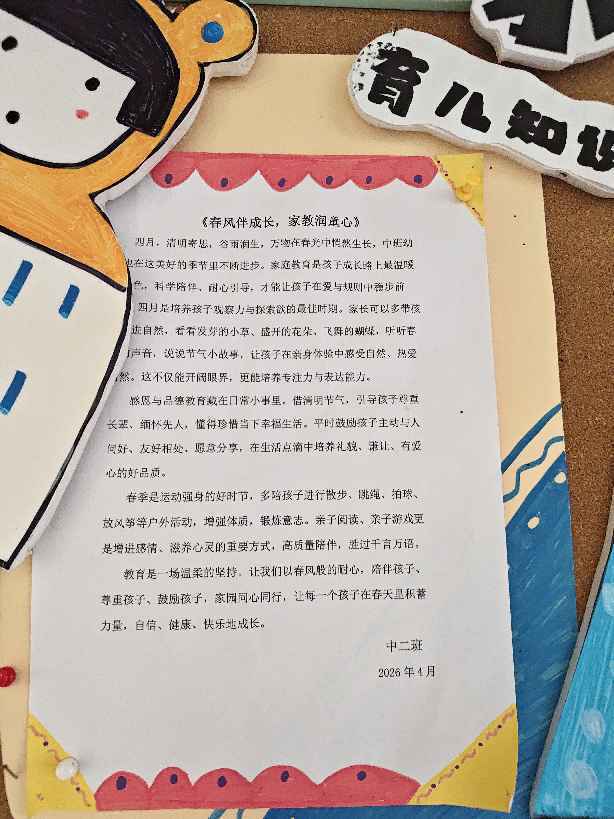 育儿知识
《春风伴成长，家教润童心》
四月，清明寄思，谷雨润生，万物在春光中悄然生长，中班幼
也在这美好的季节里不断进步。家庭教育是孩子成长路上最温暖
色，科学陪伴、耐心引导，才能让孩子在爱与规则中稳步前
四月是培养孩子观察力与探索欲的最佳时期。家长可以多带孩
进自然，看看发芽的小草、盛开的花朵、飞舞的蝴蝶，听听春
声音，说说节气小故事，让孩子在亲身体验中感受自然、热爱
然。这不仅能开阔眼界，更能培养专注力与表达能力。
感恩与品德教育藏在日常小事里，借清明节气，引导孩子尊重
长辈、缅怀先人，懂得珍惜当下幸福生活。平时鼓励孩子主动与人
问好、友好相处、愿意分享，在生活点滴中培养礼貌、谦让、有爱
心的好品质。
春季是运动强身的好时节，多陪孩子进行散步、跳绳、拍球、
放风筝等户外活动，增强体质，锻炼意志。亲子阅读、亲子游戏更
是增进感情、滋养心灵的重要方式，高质量陪伴，胜过千言万语。
教育是一场温柔的坚持，让我们以春风般的耐心，陪伴孩子、
尊重孩子、鼓励孩子，家园同心同行，让每一个孩子在春天里积蓄
力量，自信、健康、快乐地成长。
中二班
2026年4月